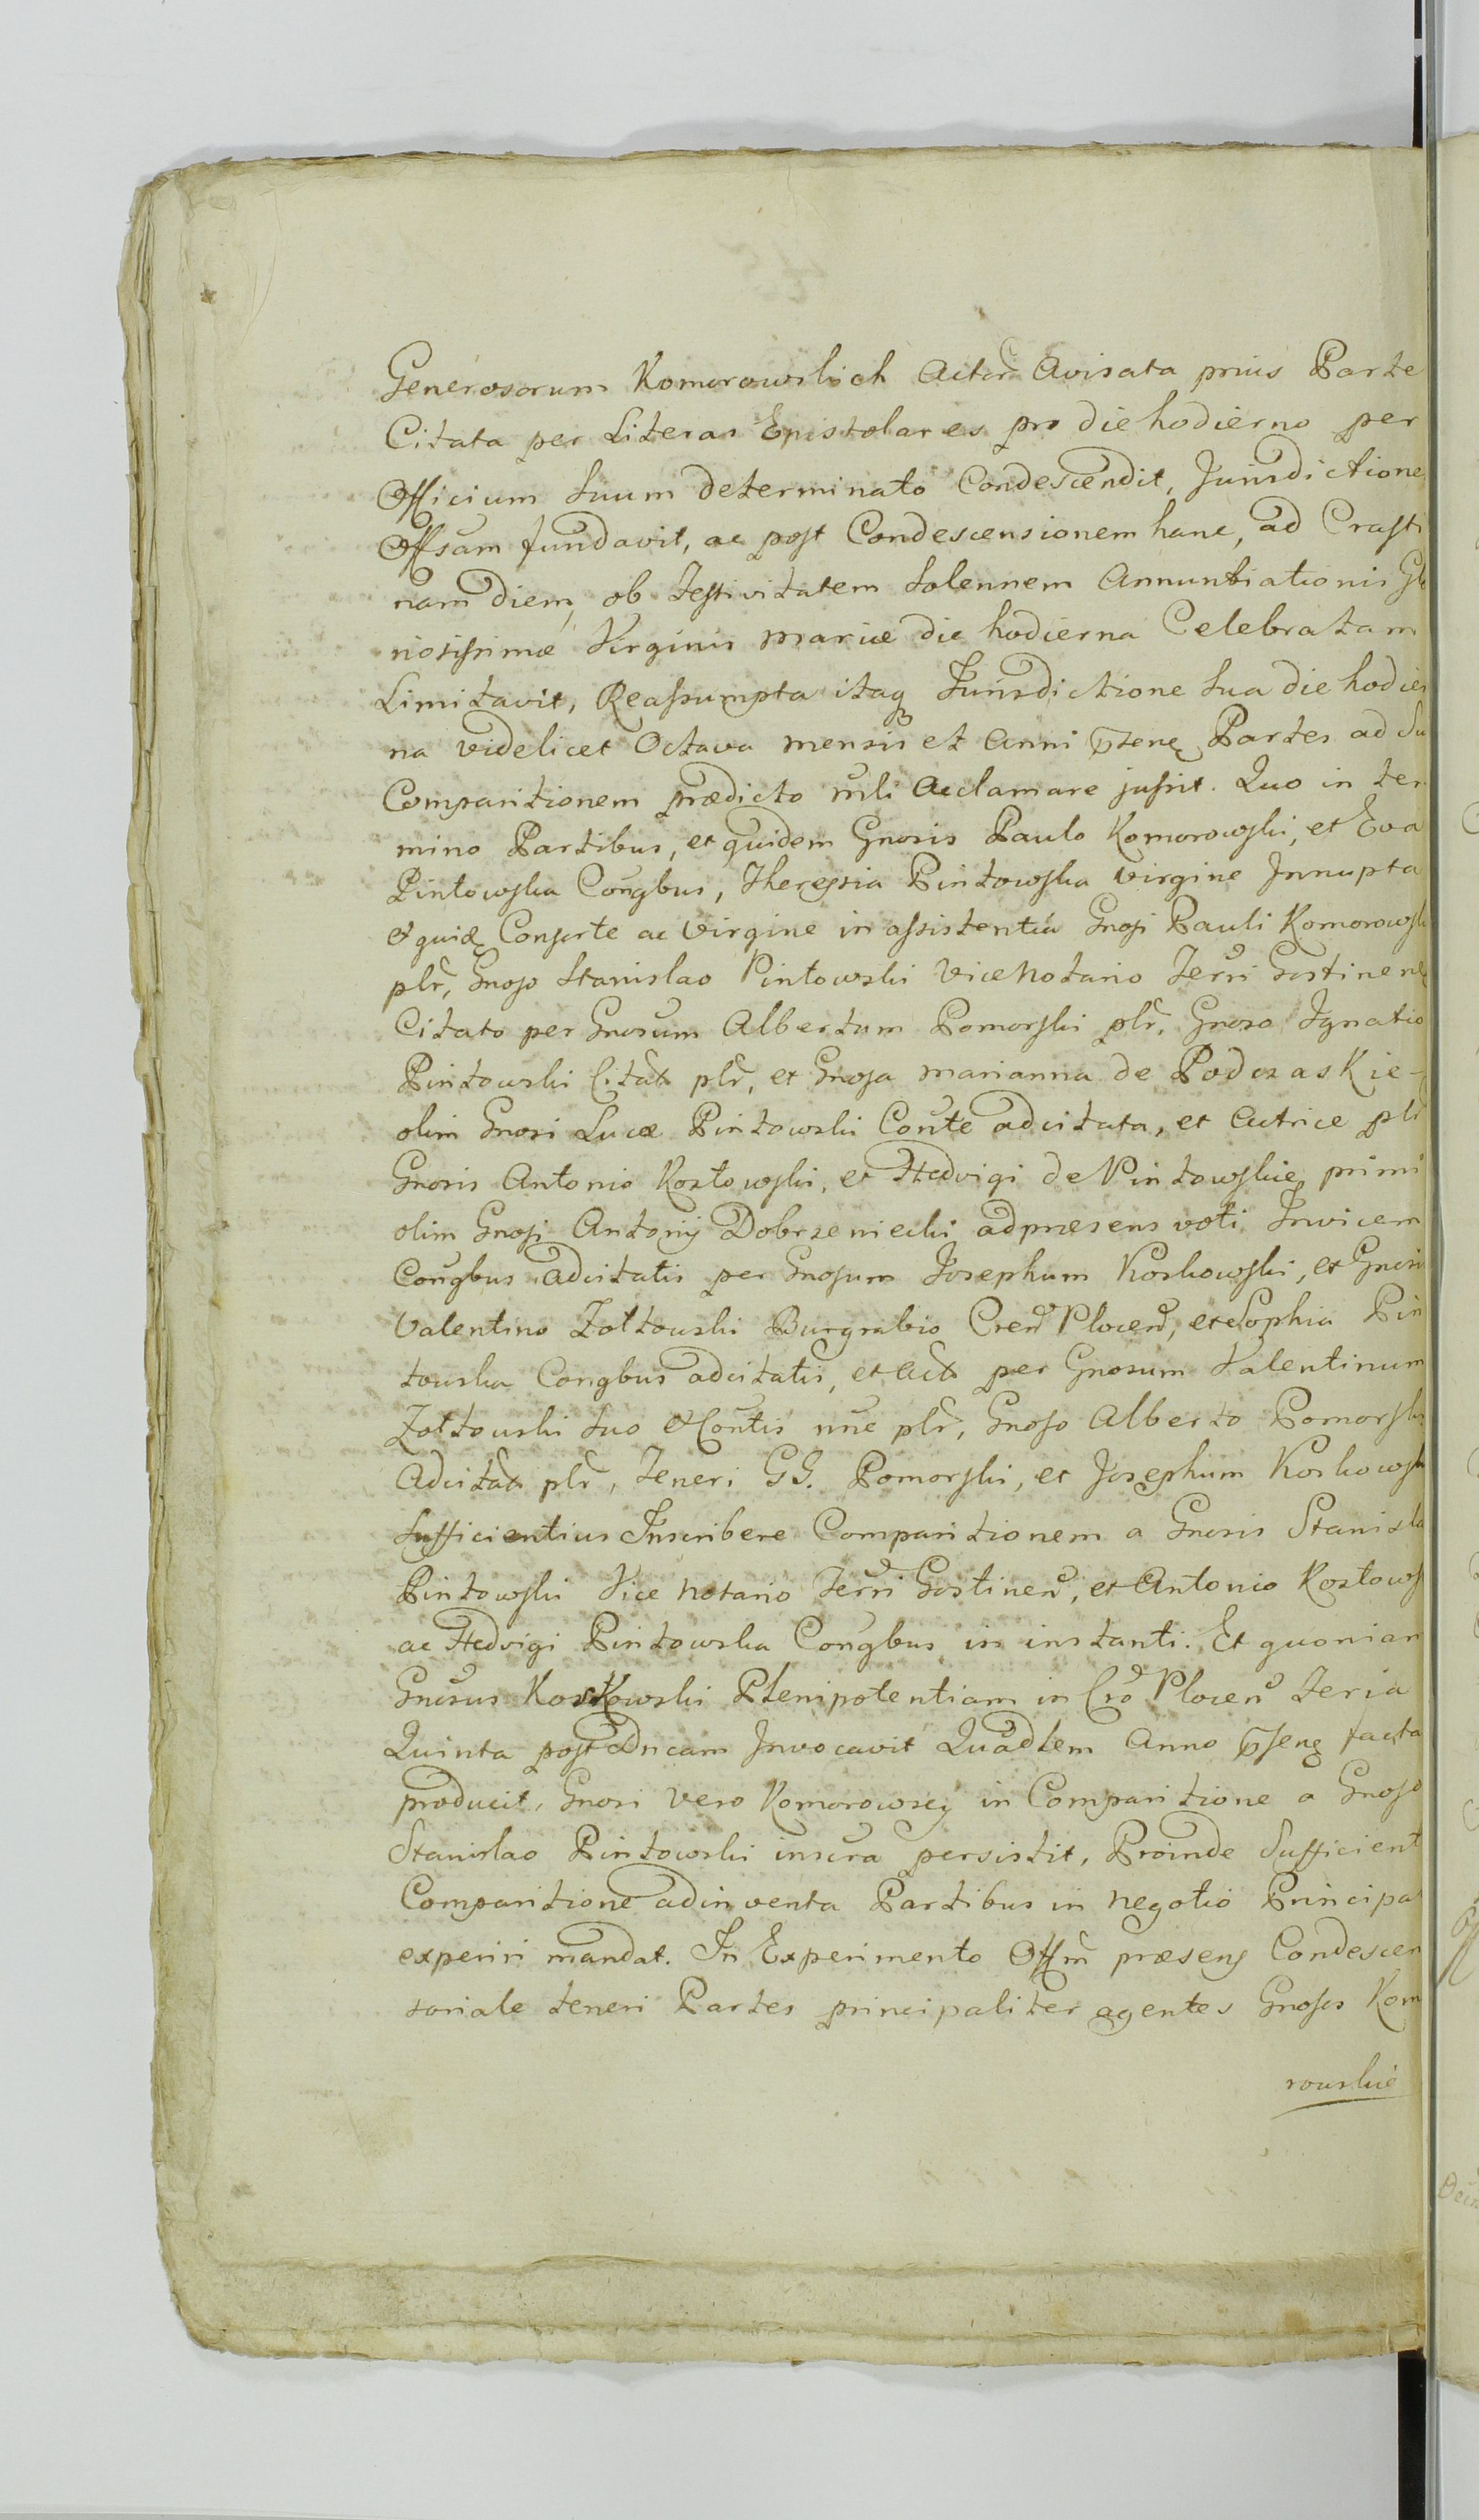 Generosorum Komorowskich Actorũ Avisata prius Parte
Citata per Literas Epistolares pro die hodierno per
Officium Suum determinato Condescendit, Jurisdictione
Offsam fundavit, ac post Condescensionem hanc, ad Crasti
nam diem, ob Festivitatem Solennem Annuntiationis Glo
riosissimæ Virginis Mariæ die hodierna Celebratam
Limitavit, Reassumpta itaq Jurisdictione Sua die hodier
na videlicet Octava mensis et Anni p̃seng Partes ad Su
Comparitionem prædicto mli Acclamare jussit. Quo in ter
mino Partibus, et quidem Gnosis Paulo Komorowski, et Eva
Pintowska Congbus, Theressia Pintowska Virgine Innupta
et quidẽ Consorte ac Virgine in assistentia Gnosi Pauli Komorowsk
plr̃, Gnoso Stanislao Pintowski Vice Notario Terri Gostinen
Citato per Gnosum Albertum Pomorski plr̃, Gnoso Ignatio
Pintowski Citato plr̃, et Gnosa Marianna de Podczaskie
olim Gnosi Lucæ Pintowski Conte adcitata, et Actrice plr̃
Gnosis Antonio Kostowski, et Hedvigi de Pintowskie primi
olim Gnosi Antonij Dobrzeniecki ad præsens voti Invicem
Congbus adcitatis per Gnosum Josephum Koskowski, et Gnosi
Valentino Zottowski Burgrabio Cren̄ Plocen̄, et Sophia Pin
towska Congbus adcitatis, et Acto per Gnosum Valentinum
Zottowski Suo et Contis nne plr̃, Gnoso Alberto Pomorski
Adcitato plr̃, Teneri GG. Pomorski, et Josephum Koskowsk
Sufficientius Inscribere Comparitionem a Gnosis Stanisla
Pintowski Vice Notario Terri Gostinen̄, et Antonio Kostows
ac Hedvigi Pintowska Congbus in instanti. Et quoniam
Gnosus Koskowski Plenipotentiam in Cro Plocen̄ Feria
Quinta post Dncam Invocavit Quadlem Anno p̃seng facta
producit, Gnosi Vero Komorowscy in Comparitione a Gnoso
Stanislao Pintowski inscra persistit, Proinde Sufficient
Comparitione adinventa Partibus in negotio Principa
experiri mandat. In Experimento Offm̃ præsens Condescen
soriale teneri Partes principaliter agentes Gnosos Kom
rowskie